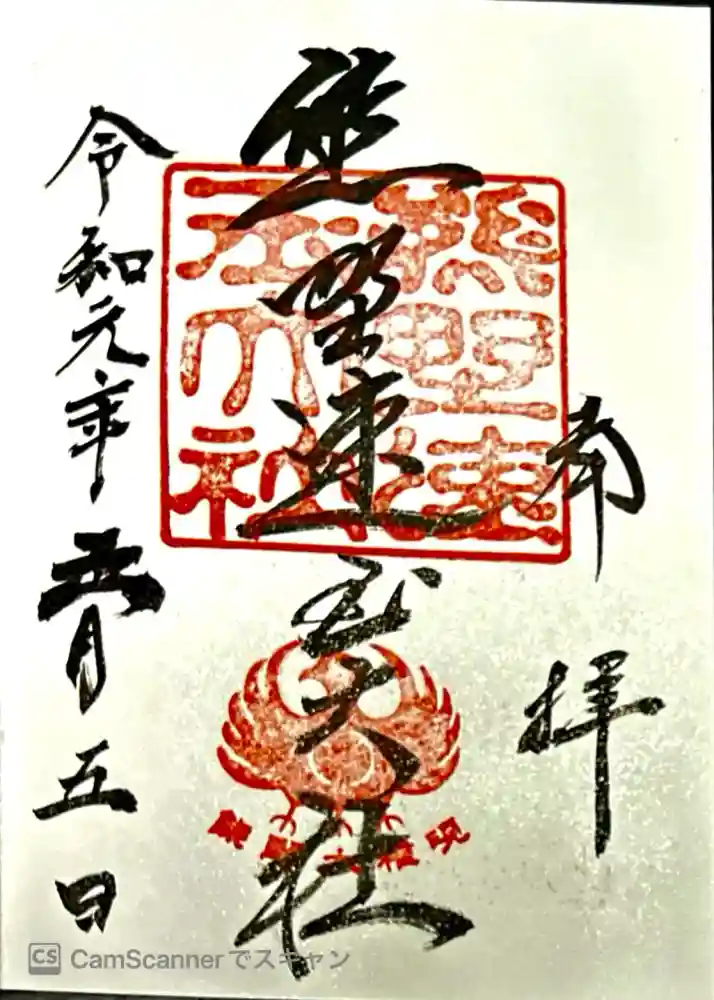 奉
拝
熊野速玉大社
熊野速
玉大社
熊野大権現
令和元年五月五日
CS CamScannerでスキャン